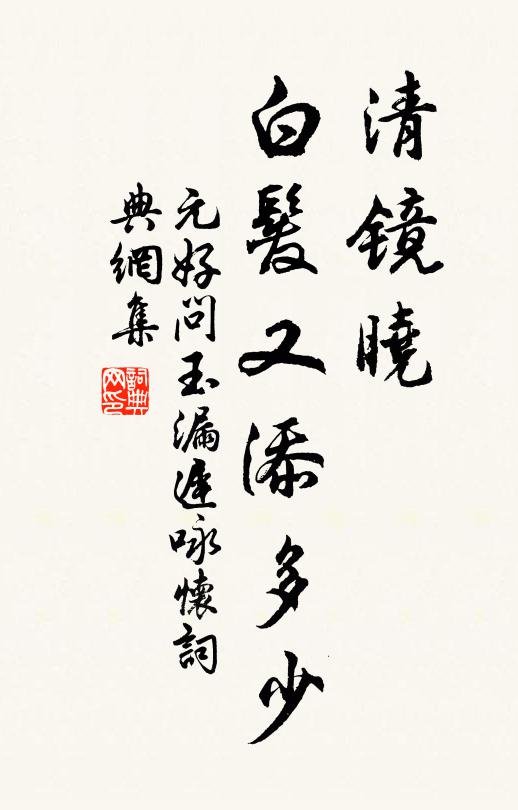 清鏡曉
白髮又添多少
元好問玉漏遲咏懷詞
典網集
詞典
网印